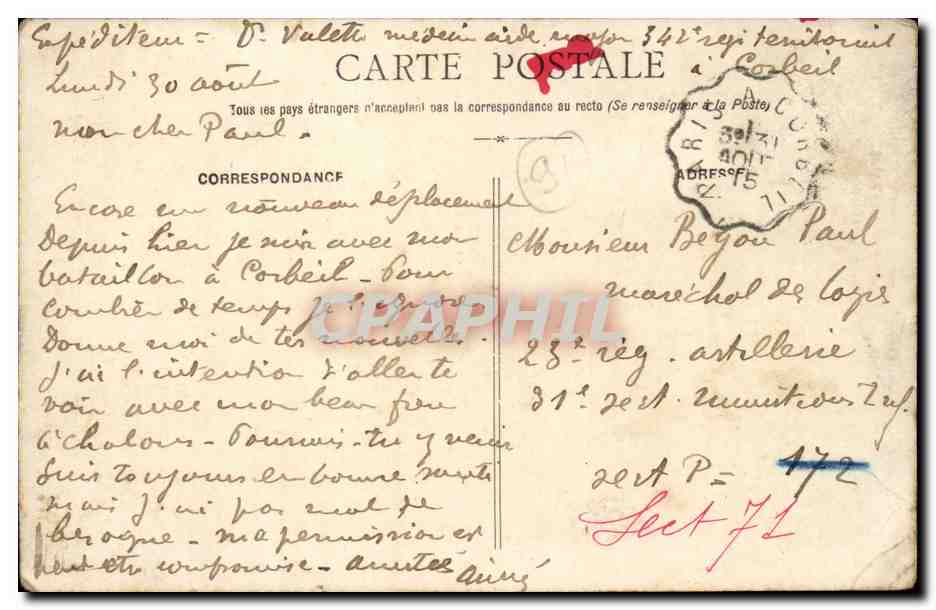 Expéditeur = Dr Valette médecin aide major 342e régi territorial
à Corbeil
Lundi 30 août
CARTE POSTALE
Tous les pays étrangers n'acceptent pas la correspondance au recto (Se renseigner à la Poste)
mon cher Paul.
CORRESPONDANCE
Encore un nouveau déplacement
Depuis hier je suis avec mon
bataillon à Corbeil - Pour
combien de temps je l'ignore
Donne moi de tes nouvelles.
J'ai l'intention d'aller te
voir avec mon beau frère
à Chalons - Pourrais-tu y venir
Suis toujours en bonne santé
mais j'ai pas mal de
besogne - ma permission est
peut etre compromise - amitiés
Aimé
9
PARIS A CORBEIL
31
AOUT
15
ADRESSE
Monsieur Begou Paul
maréchal des logis
23e rég. artillerie
31e sect. munitions
sect P = 172
Sect 71
CPAPHIL